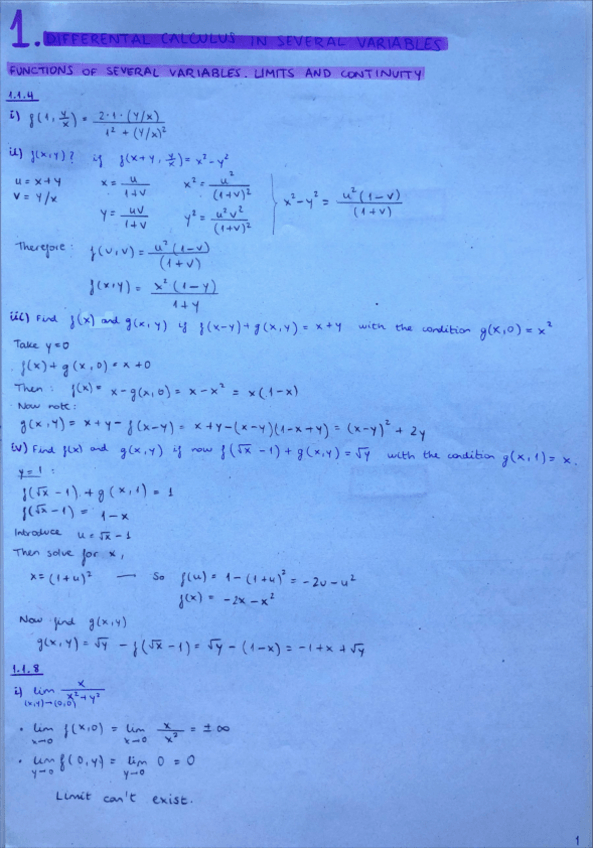 1. DIFFERENTAL CALCULUS IN SEVERAL VARIABLES
FUNCTIONS OF SEVERAL VARIABLES. LIMITS AND CONTINUITY
1.1.4
i) f(1, y/x) = 2·1·(y/x) / 1² + (y/x)²
ii) f(x,y)? if f(x+y, y/x) = x²-y²
u = x+y x = u/1+v x² = u²/(1+v)²
v = y/x y = uv/1+v y² = u²v²/(1+v)² x²-y² = u²(1-v)/(1+v)
Therefore: f(u,v) = u²(1-v)/(1+v)
f(x,y) = x²(1-y)/1+y
iii) Find f(x) and g(x,y) if f(x-y)+g(x,y) = x+y with the condition g(x,0) = x²
Take y=0
f(x)+g(x,0) = x+0
Then: f(x) = x-g(x,0) = x-x² = x(1-x)
Now note:
g(x,y) = x+y-f(x-y) = x+y-(x-y)(1-x+y) = (x-y)²+2y
iv) Find f(x) and g(x,y) if now f(√x -1)+g(x,y) = √y with the condition g(x,1) = x.
y=1:
f(√x -1)+g(x,1) = 1
f(√x -1) = 1-x
Introduce u = √x -1
Then solve for x,
x = (1+u)² — So f(u) = 1-(1+u)² = -2u-u²
f(x) = -2x-x²
Now find g(x,y)
g(x,y) = √y - f(√x -1) = √y -(1-x) = -1+x+√y
1.1.8
i) lim (x,y)→(0,0) x/x²+y²
· lim x→0 f(x,0) = lim x→0 x/x² = ±∞
· lim y→0 f(0,y) = lim y→0 0 = 0
Limit can't exist.
1